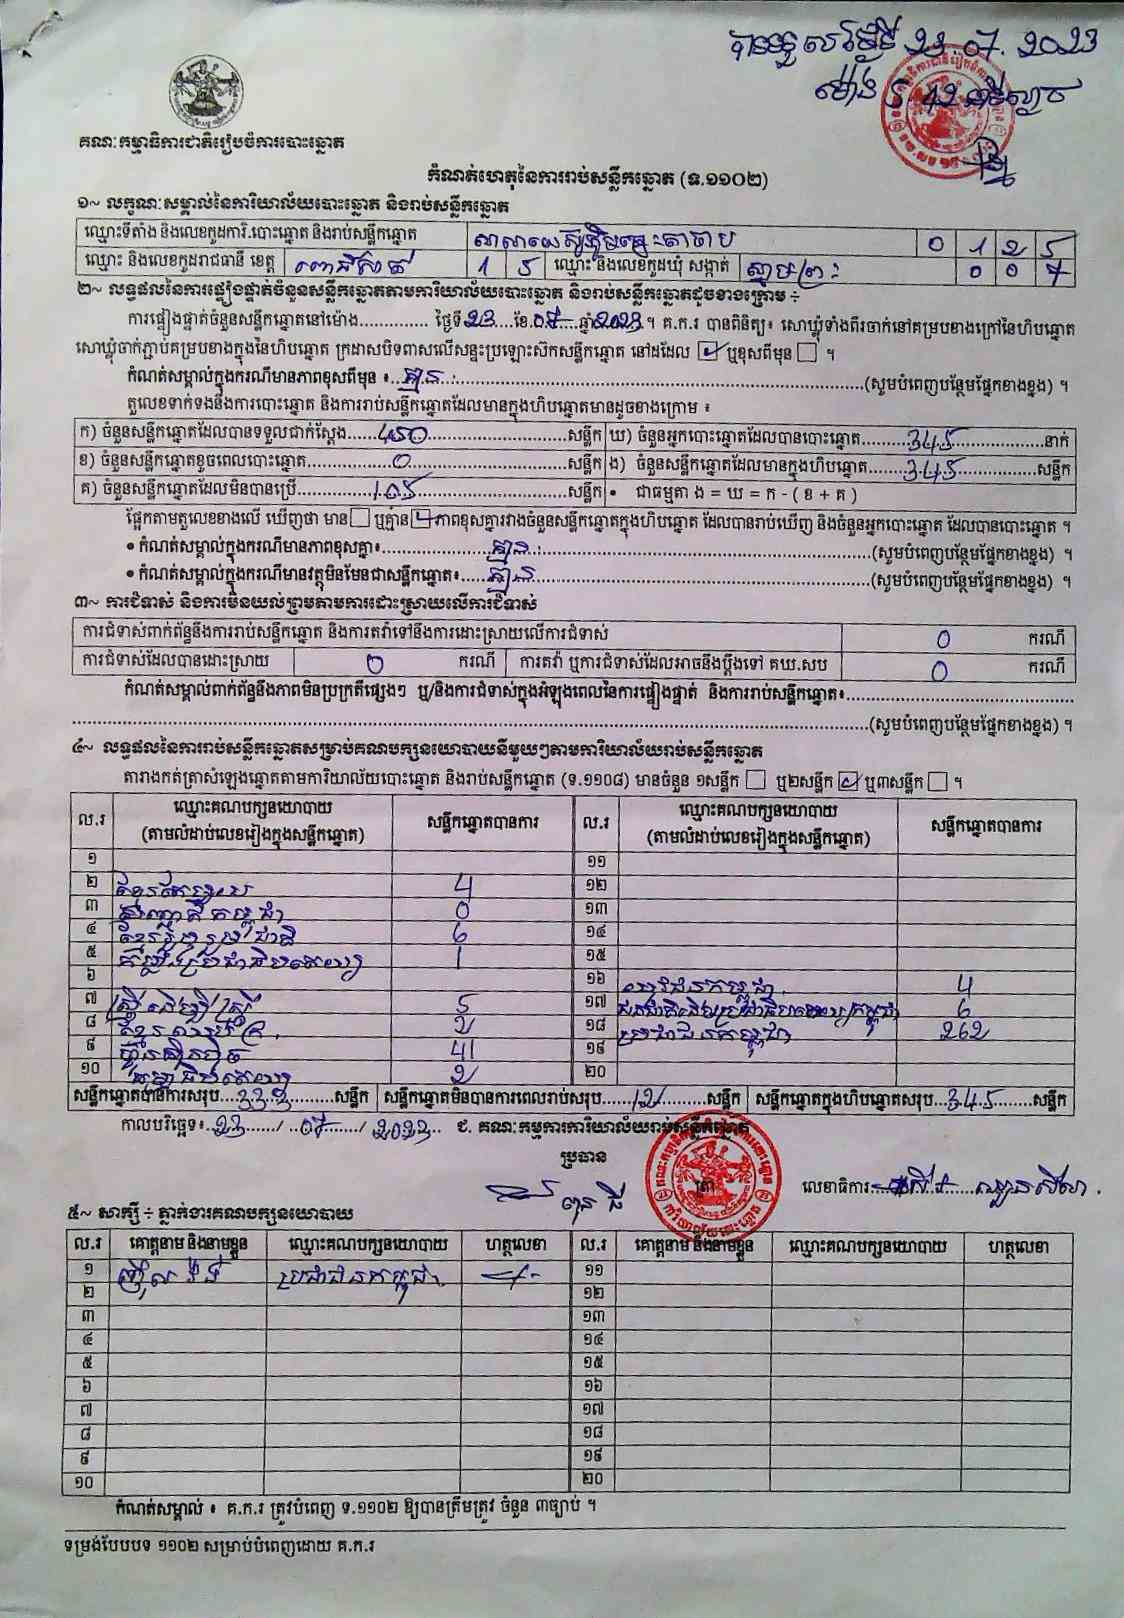 បានទទួលថ្ងៃទី 23.07.2023
ម៉ោង
គណៈកម្មាធិការជាតិរៀបចំការបោះឆ្នោត
កំណត់ហេតុនៃការរាប់សន្លឹកឆ្នោត (ទ.១១០២)
១~ លក្ខណៈសម្គាល់នៃការិយាល័យបោះឆ្នោត និងរាប់សន្លឹកឆ្នោត
ឈ្មោះទីតាំង និងលេខកូដការិ.បោះឆ្នោត និងរាប់សន្លឹកឆ្នោត 0 1 2 5
ឈ្មោះ និងលេខកូដរាជធានី ខេត្ត ពោធិ៍សាត់ 1 5 ឈ្មោះ និងលេខកូដឃុំ សង្កាត់ ស្នាមព្រះ 0 0 7
២~ លទ្ធផលនៃការផ្ទៀងផ្ទាត់ចំនួនសន្លឹកឆ្នោតតាមការិយាល័យបោះឆ្នោត និងរាប់សន្លឹកឆ្នោតដូចខាងក្រោម ÷
ការផ្ទៀងផ្ទាត់ចំនួនសន្លឹកឆ្នោតនៅម៉ោង.............. ថ្ងៃទី23 ខែ.07 ឆ្នាំ2023។ គ.ក.រ បានពិនិត្យ៖ សោឃ្លុំទាំងពីរចាក់នៅគម្របខាងក្រៅនៃហិបឆ្នោត
សោឃ្លុំចាក់ភ្ជាប់គម្របខាងក្នុងនៃហិបឆ្នោត ក្រដាសបិទពាសលើសន្ទះប្រឡោះស៊កសន្លឹកឆ្នោត នៅដដែល ☑ ឬខុសពីមុន ☐ ។
កំណត់សម្គាល់ក្នុងករណីមានភាពខុសពីមុន ៖..គ្មាន..(សូមបំពេញបន្ថែមផ្នែកខាងខ្នង) ។
តួលេខទាក់ទងនឹងការបោះឆ្នោត និងការរាប់សន្លឹកឆ្នោតដែលមានក្នុងហិបឆ្នោតមានដូចខាងក្រោម ៖
ក) ចំនួនសន្លឹកឆ្នោតដែលបានទទួលជាក់ស្តែង......450......សន្លឹក ឃ) ចំនួនអ្នកបោះឆ្នោតដែលបានបោះឆ្នោត......345......នាក់
ខ) ចំនួនសន្លឹកឆ្នោតខូចពេលបោះឆ្នោត......0......សន្លឹក ង) ចំនួនសន្លឹកឆ្នោតដែលមានក្នុងហិបឆ្នោត......345......សន្លឹក
គ) ចំនួនសន្លឹកឆ្នោតដែលមិនបានប្រើ......105......សន្លឹក • ជាធម្មតា ង = ឃ = ក - ( ខ + គ )
ផ្អែកតាមតួលេខខាងលើ ឃើញថា មាន ☐ ឬគ្មាន ☑ ភាពខុសគ្នារវាងចំនួនសន្លឹកឆ្នោតក្នុងហិបឆ្នោត ដែលបានរាប់ឃើញ និងចំនួនអ្នកបោះឆ្នោត ដែលបានបោះឆ្នោត ។
• កំណត់សម្គាល់ក្នុងករណីមានភាពខុសគ្នា៖......គ្មាន......(សូមបំពេញបន្ថែមផ្នែកខាងខ្នង) ។
• កំណត់សម្គាល់ក្នុងករណីមានវត្ថុមិនមែនជាសន្លឹកឆ្នោត៖......គ្មាន......(សូមបំពេញបន្ថែមផ្នែកខាងខ្នង) ។
៣~ ការជំទាស់ និងការមិនយល់ព្រមតាមការដោះស្រាយលើការជំទាស់
ការជំទាស់ពាក់ព័ន្ធនឹងការរាប់សន្លឹកឆ្នោត និងការតវ៉ាទៅនឹងការដោះស្រាយលើការជំទាស់ 0 ករណី
ការជំទាស់ដែលបានដោះស្រាយ 0 ករណី ការតវ៉ា ឬការជំទាស់ដែលអាចនឹងប្តឹងទៅ គឃ.សប 0 ករណី
កំណត់សម្គាល់ពាក់ព័ន្ធនឹងភាពមិនប្រក្រតីផ្សេងៗ ឬ/និងការជំទាស់ក្នុងអំឡុងពេលនៃការផ្ទៀងផ្ទាត់ និងការរាប់សន្លឹកឆ្នោត៖......
......(សូមបំពេញបន្ថែមផ្នែកខាងខ្នង) ។
៤~ លទ្ធផលនៃការរាប់សន្លឹកឆ្នោតសម្រាប់គណបក្សនយោបាយនីមួយៗតាមការិយាល័យរាប់សន្លឹកឆ្នោត
តារាងកត់ត្រាសំឡេងឆ្នោតតាមការិយាល័យបោះឆ្នោត និងរាប់សន្លឹកឆ្នោត (ទ.១១០៨) មានចំនួន ១សន្លឹក ☐ ឬ២សន្លឹក ☑ ឬ៣សន្លឹក ☐ ។
ល.រ ឈ្មោះគណបក្សនយោបាយ (តាមលំដាប់លេខរៀងក្នុងសន្លឹកឆ្នោត) សន្លឹកឆ្នោតបានការ ល.រ ឈ្មោះគណបក្សនយោបាយ (តាមលំដាប់លេខរៀងក្នុងសន្លឹកឆ្នោត) សន្លឹកឆ្នោតបានការ
១ ១១
២ 4 ១២
៣ 0 ១៣
៤ ខ្មែររួបរួមជាតិ 6 ១៤
៥ កម្លាំងប្រជាធិបតេយ្យ 1 ១៥
៦ ១៦ យុវជនកម្ពុជា 4
៧ ស្ត្រីដើម្បីស្ត្រី 5 ១៧ 6
៨ 2 ១៨ ប្រជាជនកម្ពុជា 262
៩ ហ៊្វុនស៊ិនប៉ិច 41 ១៩
១០ ធម្មាធិបតេយ្យ 2 ២០
សន្លឹកឆ្នោតបានការសរុប...333......សន្លឹក សន្លឹកឆ្នោតមិនបានការពេលរាប់សរុប......12......សន្លឹក សន្លឹកឆ្នោតក្នុងហិបឆ្នោតសរុប...345......សន្លឹក
កាលបរិច្ឆេទ៖..23...../..07...../..2023.. ជ. គណៈកម្មការការិយាល័យរាប់សន្លឹកឆ្នោត
ប្រធាន
លេខាធិការ
៥~ សាក្សី ÷ ភ្នាក់ងារគណបក្សនយោបាយ
ល.រ គោត្តនាម និងនាមខ្លួន ឈ្មោះគណបក្សនយោបាយ ហត្ថលេខា ល.រ គោត្តនាម និងនាមខ្លួន ឈ្មោះគណបក្សនយោបាយ ហត្ថលេខា
១ ប្រជាជនកម្ពុជា ១១
២ ១២
៣ ១៣
៤ ១៤
៥ ១៥
៦ ១៦
៧ ១៧
៨ ១៨
៩ ១៩
១០ ២០
កំណត់សម្គាល់ ៖ គ.ក.រ ត្រូវបំពេញ ទ.១១០២ ឱ្យបានត្រឹមត្រូវ ចំនួន ៣ច្បាប់ ។
ទម្រង់បែបបទ ១១០២ សម្រាប់បំពេញដោយ គ.ក.រ